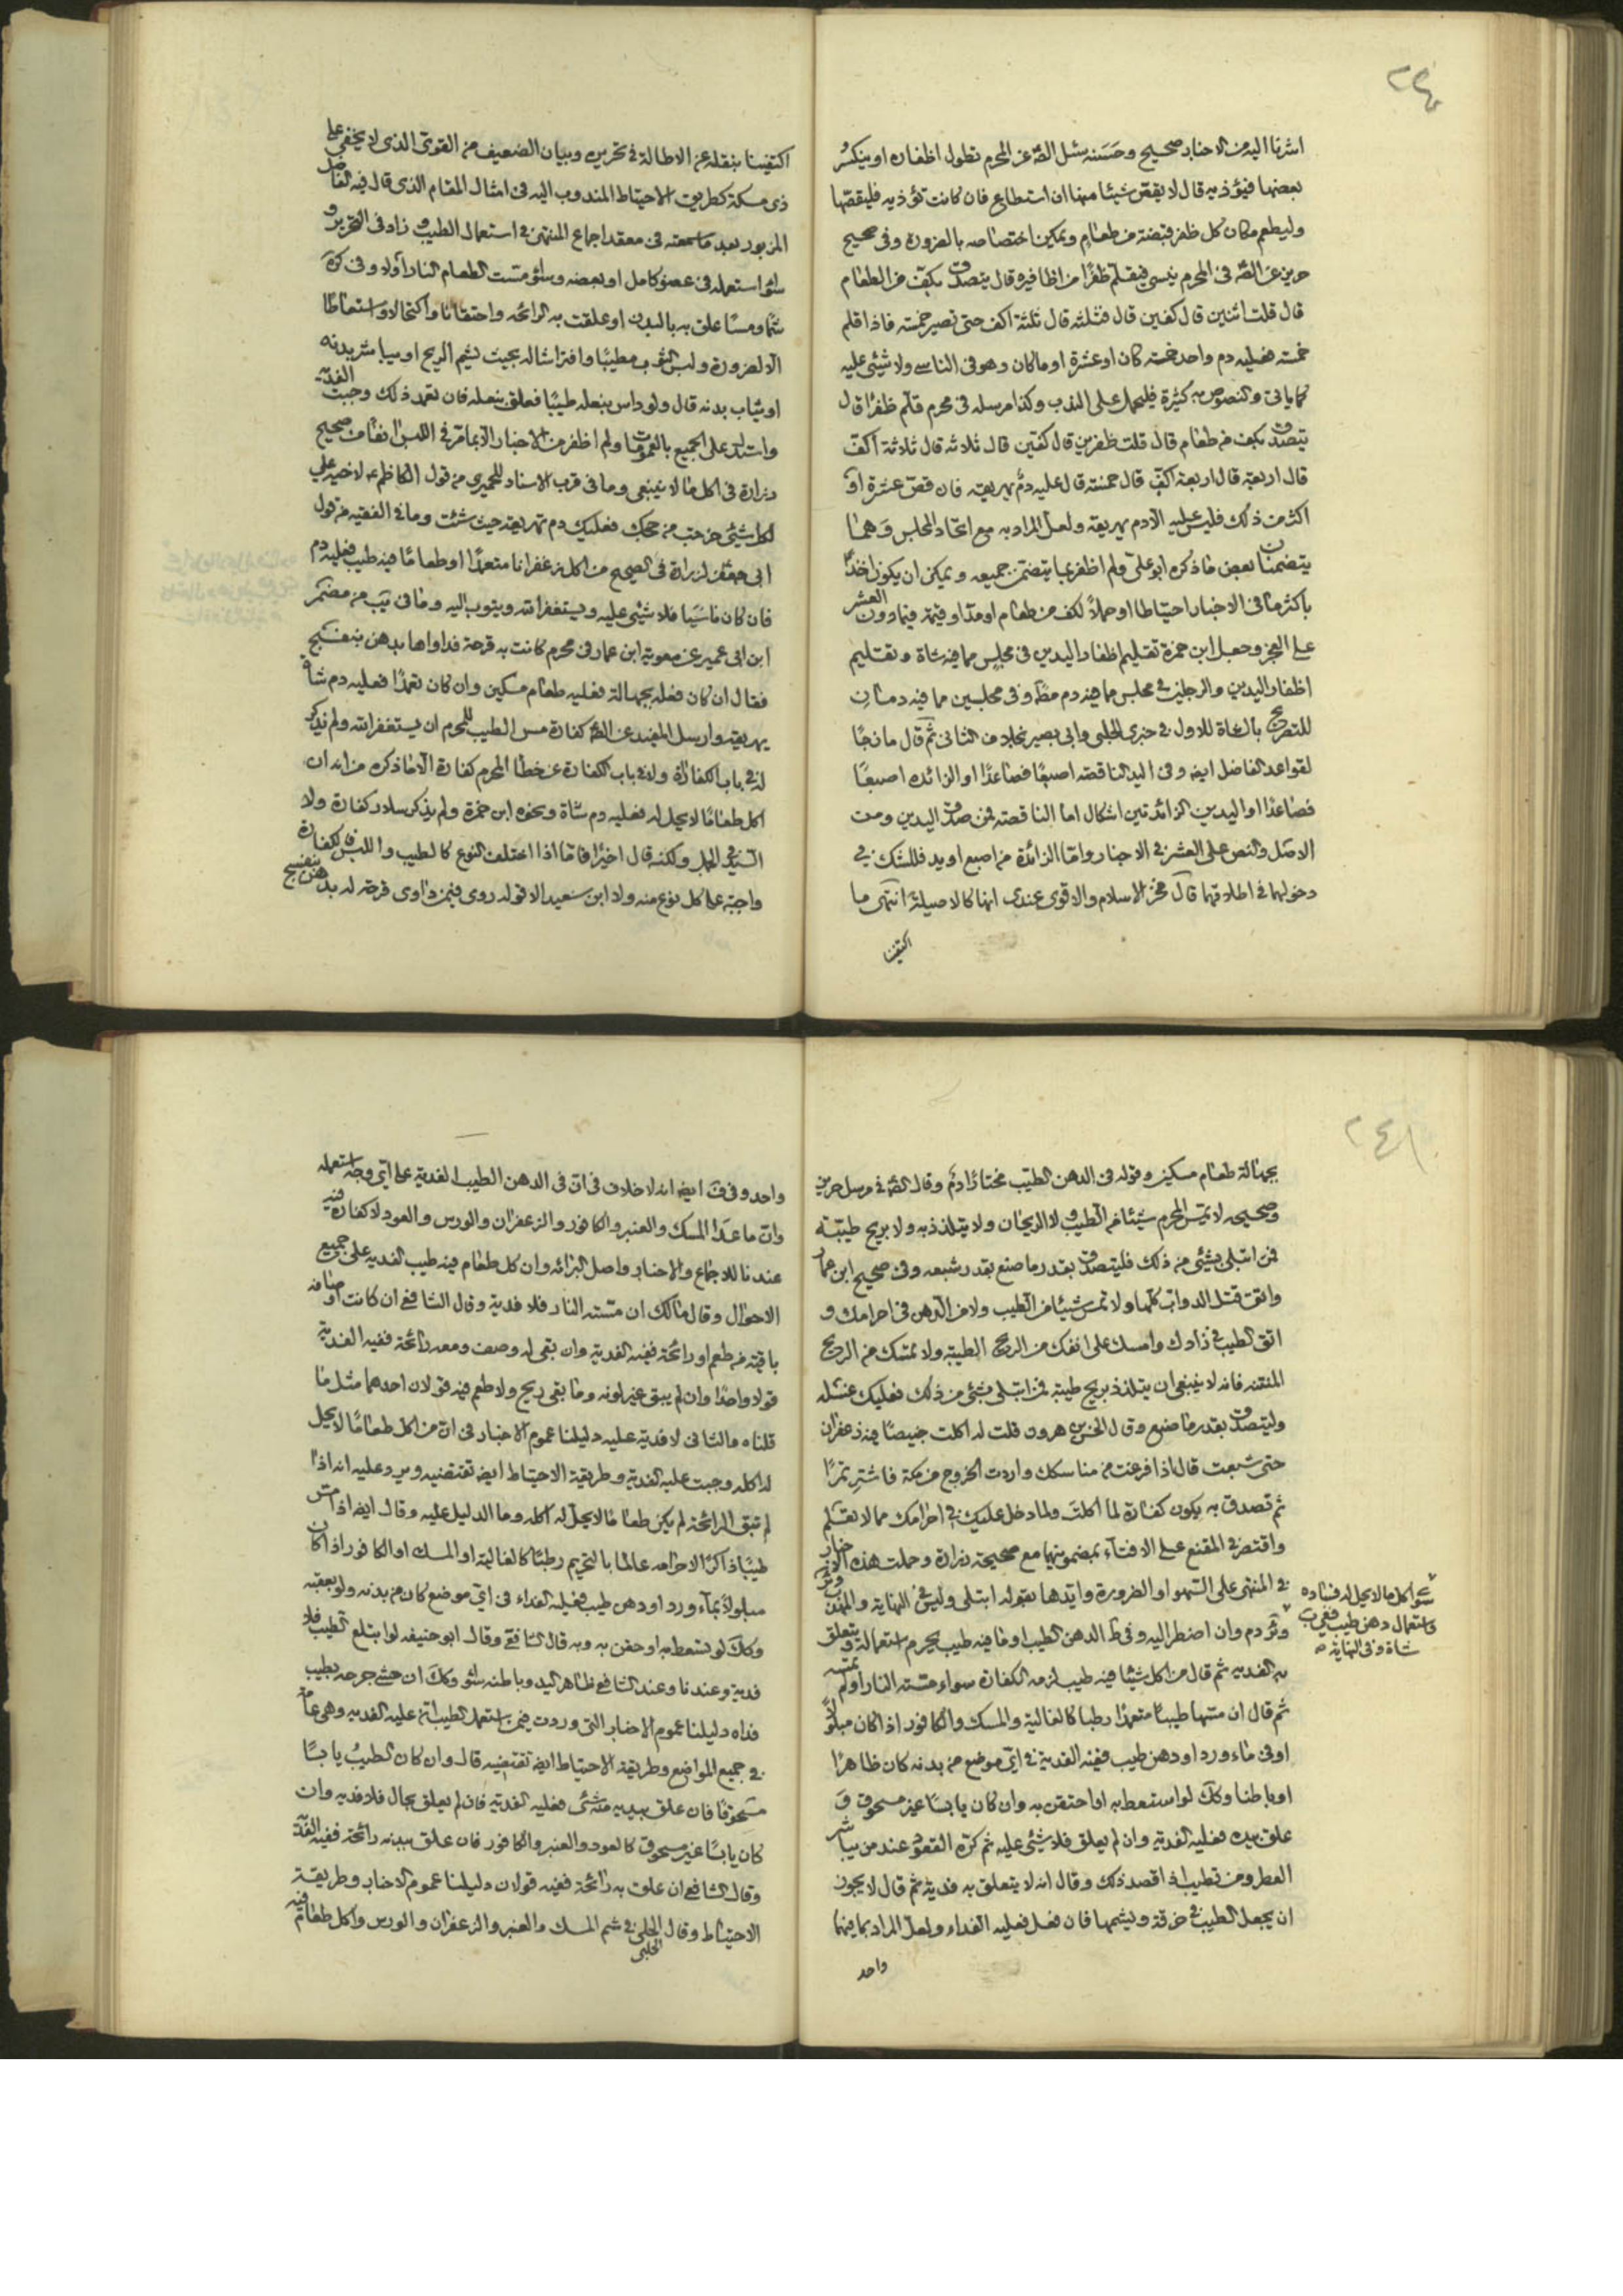 ٢٤٠
اشرنا اليه من الاخبار صحيح وحسنه سئل الصّ عن المحرم تطول اظفاره او ينكسر
بعضها فيؤذيه قال لا يقص شيئا منها ان استطاع فان كانت تؤذيه فليقصّها
وليطعم مكان كل ظفر قبضة من طعام ويمكن اختصاصه بالضرورة وفى صحيح
حريز عن الصّ فى المحرم ينسى فيقلّم ظفرًا من اظافيره قال يتصدق بكفّ من الطعام
قال قلت اثنين قال كفين قال فثلثه قال ثلثة اكف حتى تصير خمسة فاذا قلم
خمسة فعليه دم واحد خمسة كان او عشرة او ما كان وهو فى الناسى ولا شيئ عليه
كما ياتى والنصوص به كثيرة فليحمل على الندب وكذا مرسله فى محرم قلّم ظفرا قال
يتصدق بكف من طعام قال قلت ظفرين قال كفين قال ثلاثه قال ثلاثة اكفّ
قال اربعة قال اربعة اكفّ قال خمسة قال عليه دمٌ يهريقه فان قصّ عشرة او
اكثر من ذلك فليس عليه الّا دم يهريقه ولعلّ المراد به مع اتحاد المجلس وهما
يتضمنان بعض ما ذكره ابو على ولم اظفر بما يتضمن جميعه ويمكن ان يكون اخذًا
باكثر ما فى الاخبار احتياطا او حملاً لكف من طعام او مدّ او قيمة فيما دون العشر
على العجز وجعل ابن حمزة تقليم اظفار اليدين فى مجلس مما فيه شاة وتقليم
اظفار اليدين والرجلين فى مجلس مما فيه دم مط وفى مجلسين مما فيه دمان
للتصريح بالشاة للاول فى خبرى الحلبى وابى بصير بخلاف الثانى ثم قال مازجًا
لقواعد الفاضل ايضه وفى اليد الناقصة اصبعًا فصاعدًا او الزائده اصبعًا
فصاعدًا او اليدين الزائدتين اشكال اما الناقصة فمن صدق اليدين ومن
الاصل والنص على العشر فى الاخبار وامّا الزائدة من اصبع او يد فللشك فى
دخولهما فى اطلاقهما قال فخر الاسلام والاقوى عندى انها كالاصيلة انتهى ما
اكتفينا
اكتفينا بنقله عن الاطالة فى تحريره وبيان الضعيف من القوىّ الذى لا يخفى على
ذى مسكة كطريق الاحتياط المندوب اليه فى امثال المقام الذى قال فيه الفاضل
المزبور بعد ما سمعته فى معقد اجماع المنتهى فى استعمال الطيب وزاد فى التحرير و
سواء استعمله فى عضو كامل او بعضه وسواء مسّت الطعام النار أو لا وفى كرة
شمّا ومسًّا علق به بالبدن او علقت به الرائحه واحتقانا واكتحالا واستعاطا
الّا لضرورة ولبس الثوب مطيبًا وافتراشا له بحيث يشم الريح او يباشر بدنه
او ثياب بدنه قال ولو داس بنعله طيبًا فعلق بنعله فان تعمد ذلك وجبت الفدية
واستدل على الجميع بالعمومات ولم اظفر من الاخبار الّا بما مرّ فى اللبس انفا من صحيح
زرارة فى اكل ما لا ينبغى وما فى قرب الاسناد للحميرى من قول الكاظم ع لاخيه على
لكل شيئ خرجت من حجك فعليك دم تهريقه حيث شئت وما فى الفقيه من قول
ابى جعفر لزرارة فى الصحيح من اكل زعفرانا متعمدًا او طعامًا فيه طيب فعليه دم
فان كان ناسيًا فلا شيئ عليه ويستغفر الله ويتوب اليه وما فى يب من مضمر
ابن ابى عمير عن معوية ابن عمار فى محرم كانت به قرحة فداواها بدهن بنفسج
فقال ان كان فعله بجهالة فعليه طعام مسكين وان كان تعمدًا فعليه دم شاة
يهريقه وارسل المفيد عن الصّ كفارة مس الطيب للمحرم ان يستغفر الله ولم يذكر
له فى باب الكفارة وله فى باب الكفارة عن خطأ المحرم كفارة الّا ما ذكره من انه ان
اكل طعامًا لا يحل له فعليه دم شاة ونحوه ابن حمزة ولم يذكر سلار كفارة ولا
السيد فى الجمل ولكنه قال اخيرًا فامّا اذا اختلف النوع كالطيب واللبس فالكفارة
واجبة على كل نوع منه ولا ابن سعيد الا قوله روى فيمن داوى قرحة له بدهن بنفسج
٢٤١
بجهالة طعام مسكين وقوله فى الدهن الطيّب مختارًا دمٌ وقال الصّ فى مرسل حريز
وصحيحه لا تمسّ المحرم شيئا من الطيب ولا الريحان ولا يتلذذ به ولا بريح طيبة
فمن ابتلى بشئ من ذلك فليتصدق بقدر ما صنع بقدر شبعه وفى صحيح ابن عمار
واتق قتل الدواب كلّها ولا تمس شيئا من الطيب ولا من الدهن فى احرامك و
اتق الطيب فى زادك وامسك على انفك من الريح الطيبة ولا تمسك من الريح
المنتنه فانه لا ينبغى ان يتلذذ بريح طيبة فمن ابتلى بشئ من ذلك فعليك غسله
وليتصدق بقدر ما صنع وقال الحسن بن هرون قلت له اكلت خبيصًا فيه زعفران
حتى شبعت قال اذا فرغت من مناسكك واردت الخروج من مكة فاشتر تمرًا
ثم تصدق به يكون كفارة لما اكلتَ ولما دخل عليك فى احرامك مما لا تعلم
واقتصر فى المقنع على الافتاء بمضمونهما مع صحيحة زرارة وحملت هذه الاخبار
فى المنتهى على السهو او الضرورة وايّدها بقوله ابتلى وليس فى النهاية والمهذب
وئر دم وان اضطر اليه وفى ط الدهن الطيب او ما فيه طيب يحرم استعماله ويتعلق
به الفديه ثم قال من اكل شيئا فيه طيب لزمه الكفارة سواء مسّته النار او لم تمسّه
ثم قال ان مسّها طيبًا متعمدًا رطبا كالغالية والمسك والكافور اذا كان مبلولًا
او فى ماء ورد او دهن طيب ففيه الفدية فى اىّ موضع من بدنه كان ظاهرًا
او باطنا وكك لو استعط به او احتقن به وان كان يابسًا غير مسحوق و
علق بيده فعليه الفدية وان لم يعلق فلا شيئ عليه ثم كرّه القعود عند من يباشر
العطر ومن تطيب اذا قصد ذلك وقال انه لا يتعلق به فدية ثم قال لا يجوز
ان يجعل الطيب فى خرقة ويشمها فان فعل فعليه الفداء ولعلّ المراد بما فيهما
واحد
سوى اكل ما لا يحل له
واستعمال دهن طيب ففى يب
شاة وفى النهاية
واحد وفى ف ايضه انه لا خلاف فى انّ فى الدهن الطيب الفدية على اىّ وجه استعمله
وانّ ما عدا المسك والعنبر والكافور والزعفران والورس والعود لا كفارة فيه
عندنا للاجماع والاخبار واصل البرائه وان كل طعام فيه طيب الفديه على جميع
الاحوال وقال مالك ان مسّته النار فلا فدية وقال الشافعى ان كانت اوصافه
باقية من طعم او رائحة ففيه الفدية وان بقى له وصف ومعه رائحة ففيه الفدية
قولا واحدًا وان لم يبق غير لونه وما بقى ريح ولا طعم فيه قولان احدهما مثل ما
قلناه والثانى لا فدية عليه دليلنا عموم الاخبار فى انّ من اكل طعامًا لا يحل
له اكله وجبت عليه الفدية وطريقة الاحتياط ايضه تقتضيه ويرد عليه انه اذا
لم تبق الرائحة لم يكن طعاما لا يحلّ له اكله وما الدليل عليه وقال ايضه اذا مس
طيبًا ذاكرًا لاحرامه عالما بالتحريم رطبًا كالغالية او المسك او الكافور اذا كان
مبلولًا بماء ورد او دهن طيب فعليه الفداء فى اىّ موضع كان من بدنه ولو بعقبه
وكك لو تسعط به او حقن به وبه قال الشافعى وقال ابو حنيفه لو ابتلع الطيب فلا
فدية وعندنا وعند الشافعى ظاهر اليد وباطنه سواء وكك ان حشى جرحه بطيب
فداه دليلنا عموم الاخبار التى وردت فيمن استعمل الطيب انّ عليه الفدية وهى عامة
فى جميع المواضع وطريقة الاحتياط ايضه تقتضيه قال وان كان الطيبُ يابسًا
مسحوقًا فان علق ببدنه منه شئ فعليه الفدية فان لم يعلق بحال فلا فديه وان
كان يابسًا غير مسحوق كالعود والعنبر والكافور فان علق ببدنه رائحة ففيه الفدية
وقال الشافعى ان علق به رائحة ففيه قولان دليلنا عموم الاخبار وطريقة
الاحتياط وقال الحلبى فى شم المسك والعنبر والزعفران والورس واكل طعام فيه
الحلبى